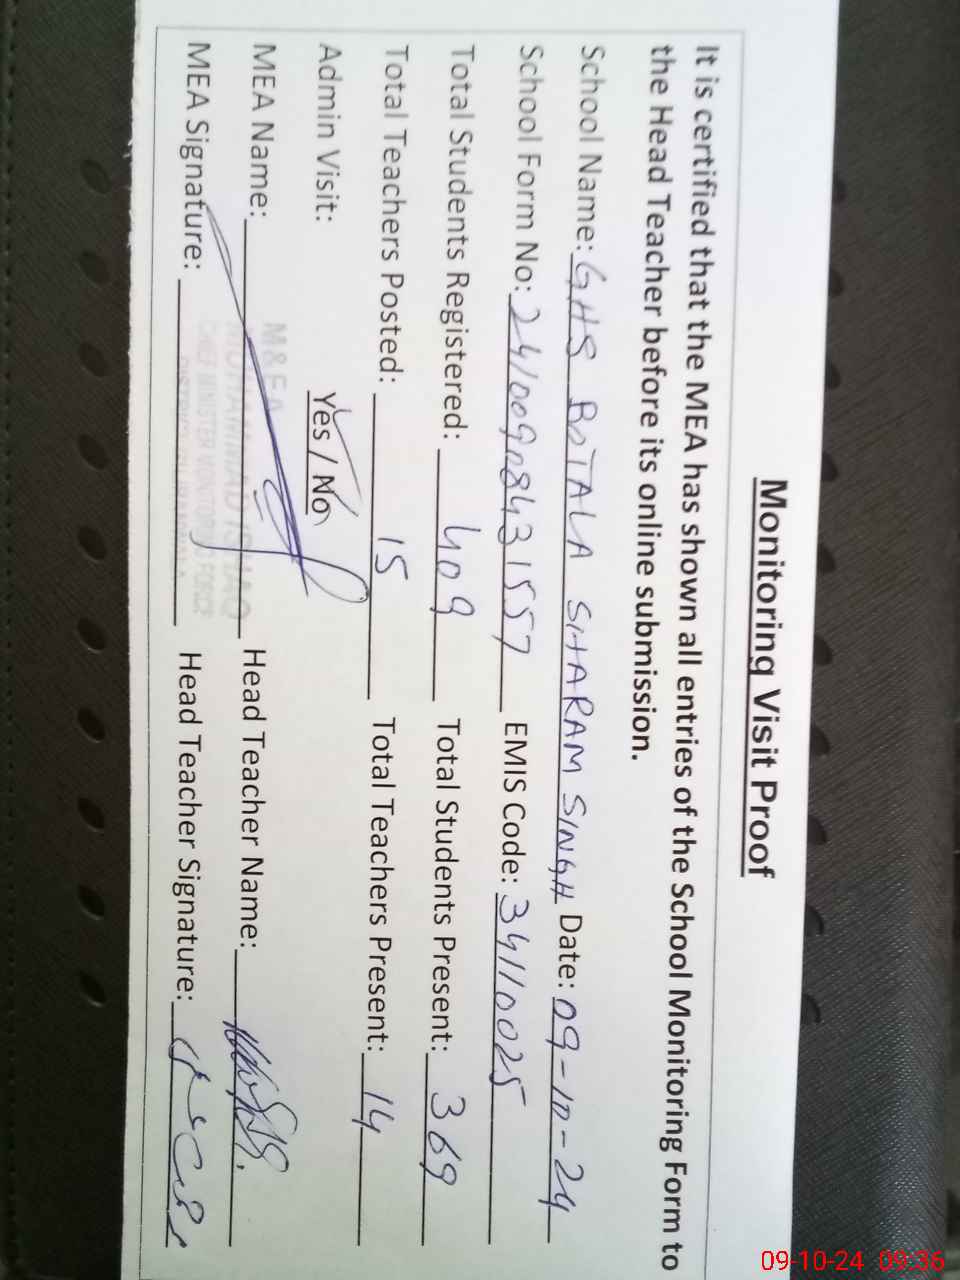 Monitoring Visit Proof
It is certified that the MEA has shown all entries of the School Monitoring Form to
the Head Teacher before its online submission.
School Name: GHS BOTALA SHARAM SINGH Date: 09-10-24
School Form No: 24100908431557 EMIS Code: 34110025
Total Students Registered: 409 Total Students Present: 369
Total Teachers Posted: 15 Total Teachers Present: 14
Admin Visit: Yes / No
MEA Name: Head Teacher Name:
MEA Signature: Head Teacher Signature:
M&EA
CHIEF MINISTER MONITORING FORCE
09-10-24 09:36